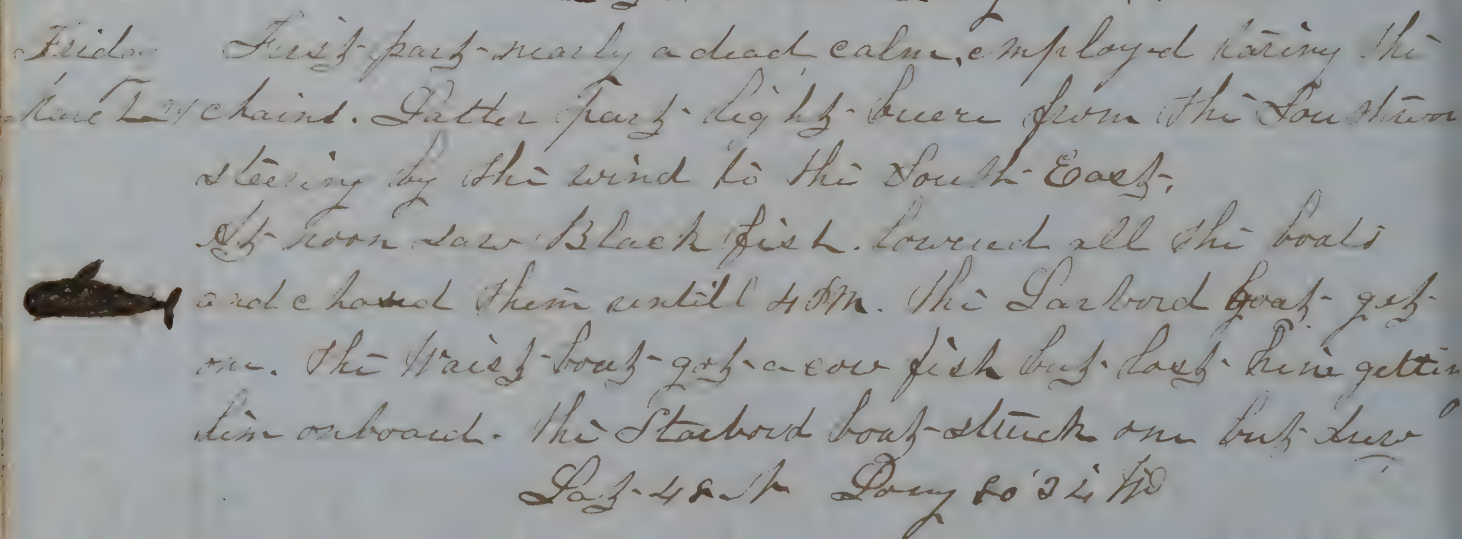 Friday First part nearly a dead calm, employed taring the
March 24 chains. Latter part light breeze from the Southward
steering by the wind to the South East.
At noon saw Black fish. lowered all the boats
and chased them untill 4 PM. The Larbord boat got
one. The Waist boat got a cow fish but lost him getting
him onboard. The Starbord boat struck one but drew
Lat 48 Long